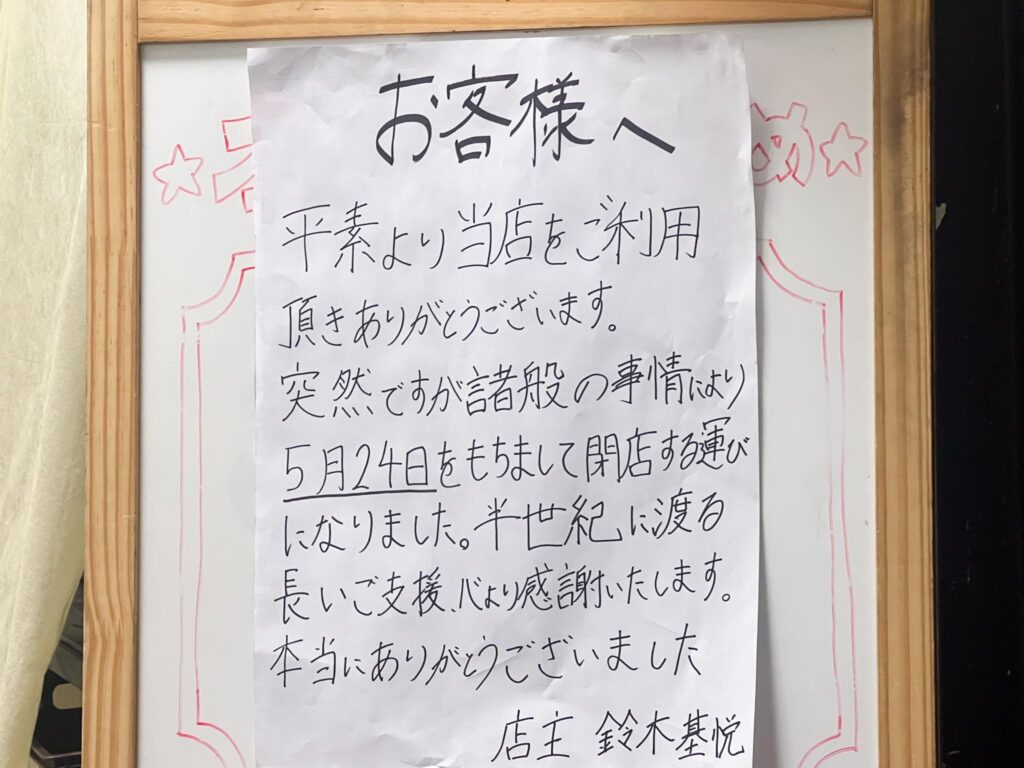 お客様へ
平素より当店をご利用
頂きありがとうございます。
突然ですが諸般の事情により
5月24日をもちまして閉店する運び
になりました。半世紀に渡る
長いご支援、心より感謝いたします。
本当にありがとうございました
店主 鈴木基悦
め